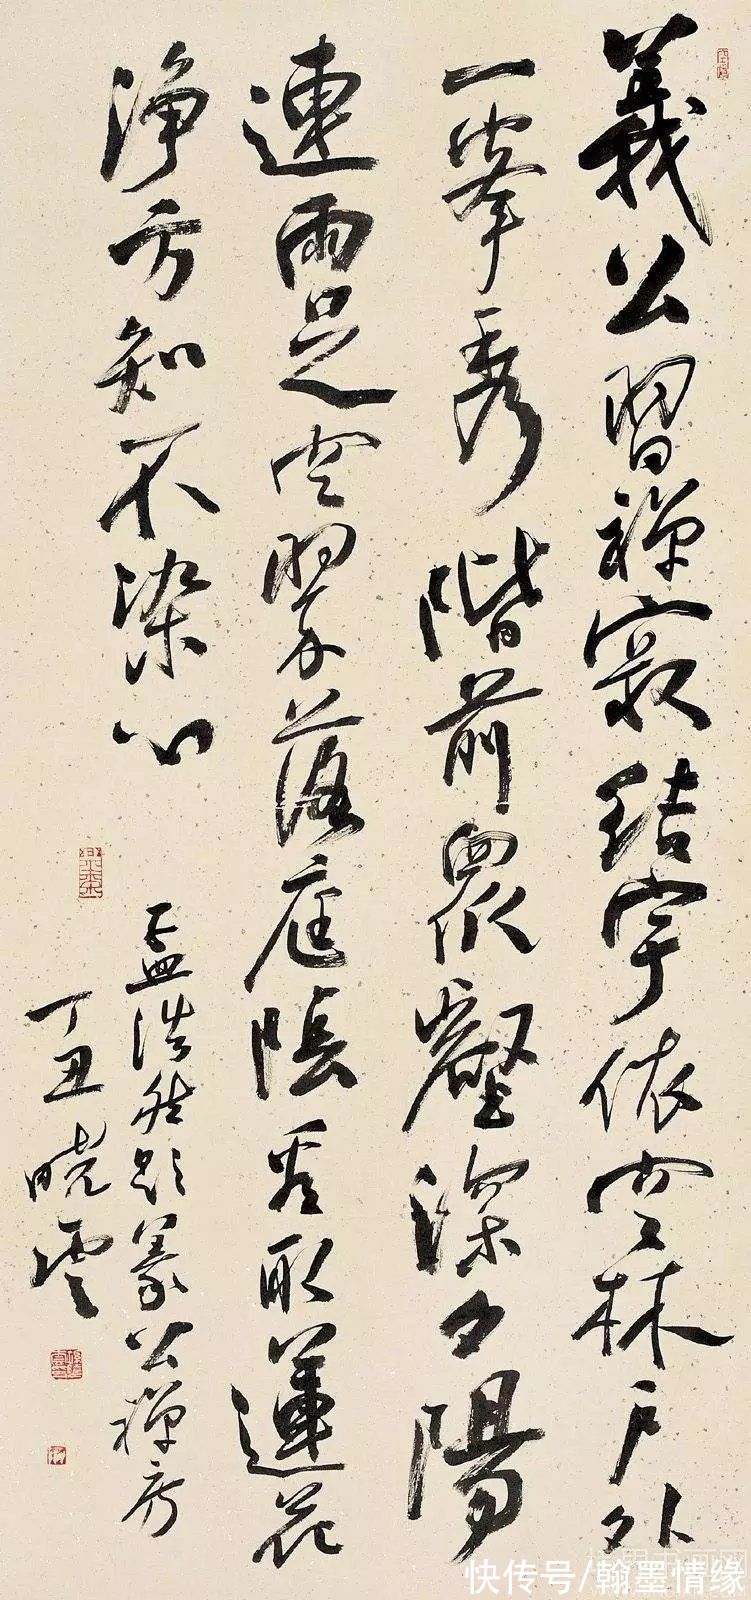 義公習禪寂結宇依空林户外
一峯秀階前眾壑深夕陽
連雨足空翠落庭陰看取蓮花
淨方知不染心
孟浩然題義公禪房
丁丑曉雲
快传号/翰墨情缘